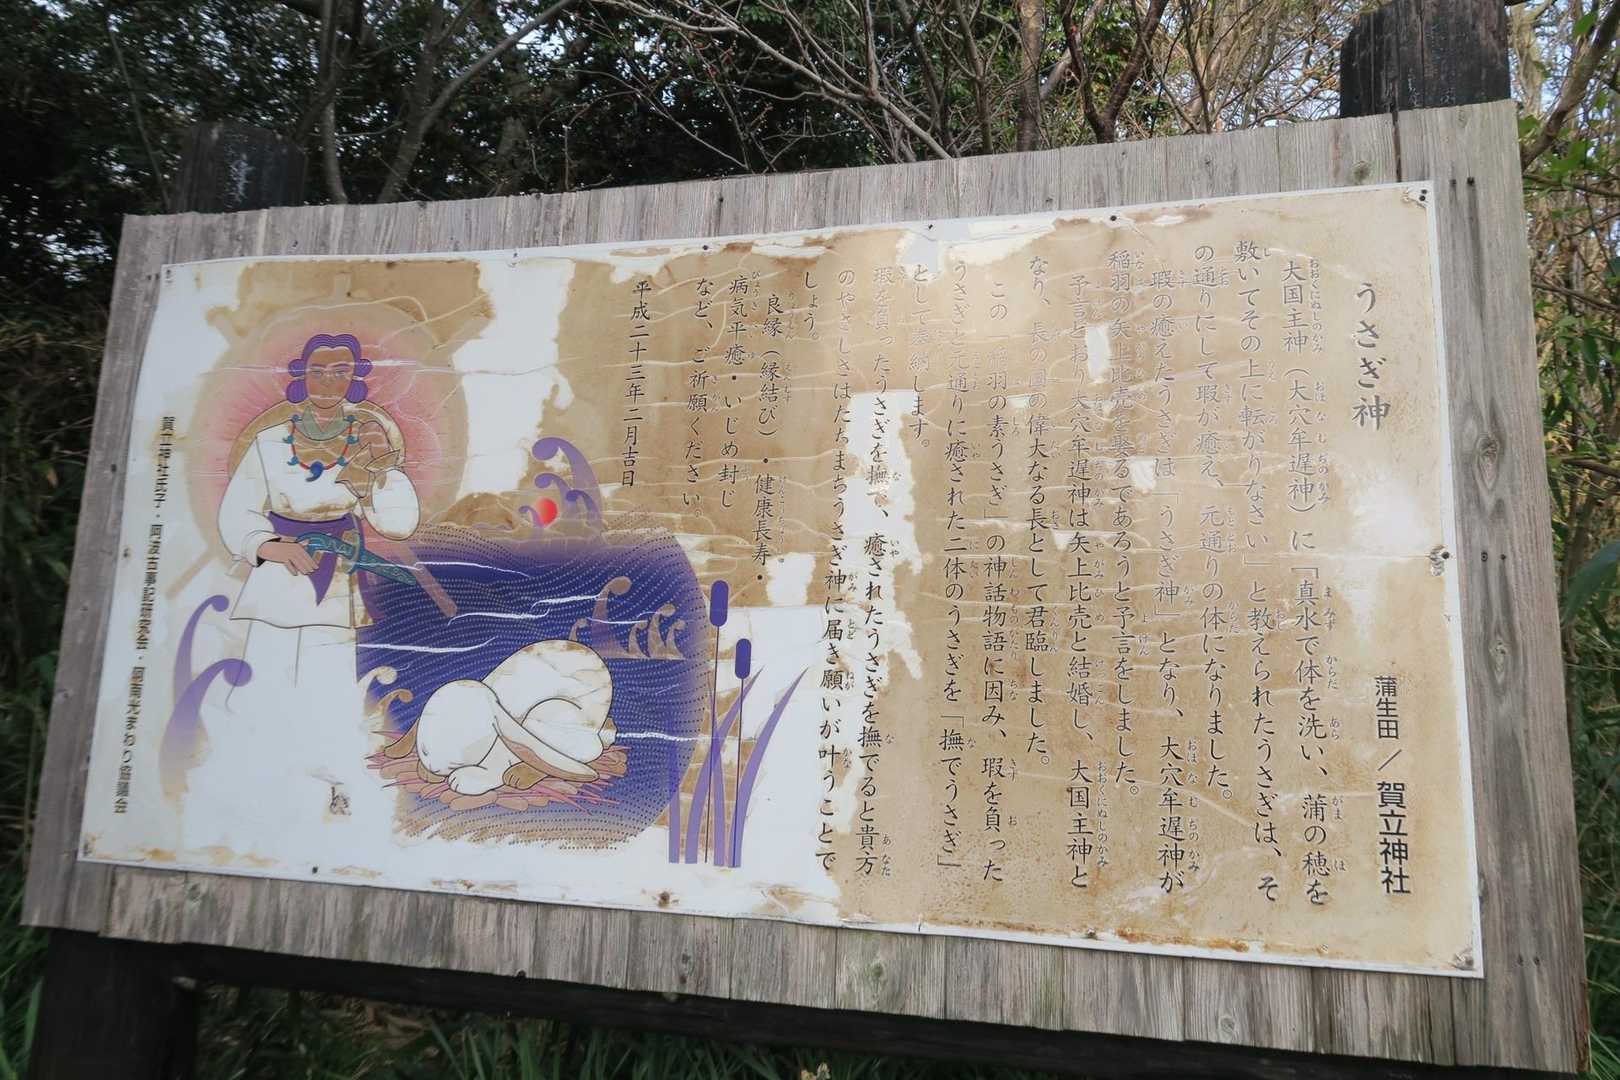 うさぎ神
蒲生田／賀立神社
大国主神（大穴牟遅神）に「真水で体を洗い、蒲の穂を
敷いてその上に転がりなさい」と教えられたうさぎは、そ
の通りにして瑕が癒え、元通りの体になりました。
瑕の癒えたうさぎは「うさぎ神」となり、大穴牟遅神が
稲羽の矢上比売を娶るであろうと予言をしました。
予言どおり大穴牟遅神は矢上比売と結婚し、大国主神と
なり、長の国の偉大なる長として君臨しました。
この「稲羽の素うさぎ」の神話物語に因み、瑕を負った
うさぎと元通りに癒された二体のうさぎを「撫でうさぎ」
として奉納します。
瑕を負ったうさぎを撫で、癒されたうさぎを撫でると貴方
のやさしさはたちまちうさぎ神に届き願いが叶うことで
しょう。
良縁（縁結び）・健康長寿・
病気平癒・いじめ封じ
など、ご祈願ください。
平成二十三年二月吉日
賀立神社氏子・阿波古事記研究会・阿南光まわり協議会